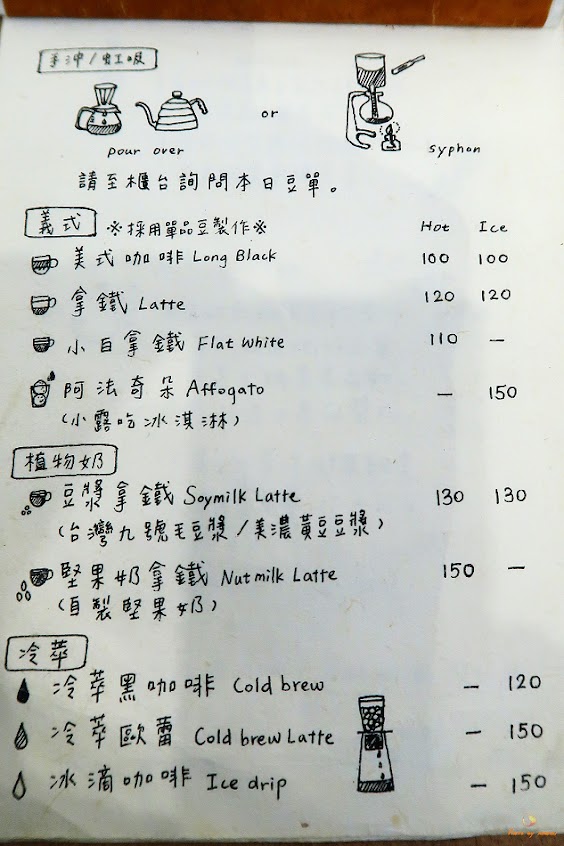 手沖/虹吸
or
pour over
syphon
請至櫃台詢問本日豆單。
義式 ※採用單品豆製作※ Hot Ice
美式咖啡 Long Black 100 100
拿鐵 Latte 120 120
小白拿鐵 Flat White 110 —
阿法奇朵 Affogato — 150
(小露吃冰淇淋)
植物奶
豆漿拿鐵 Soymilk Latte 130 130
(台灣九號毛豆漿/美濃黃豆豆漿)
堅果奶拿鐵 Nutmilk Latte 150 —
(自製堅果奶)
冷萃
冷萃黑咖啡 Cold brew — 120
冷萃歐蕾 Cold brew Latte — 150
冰滴咖啡 Ice drip — 150